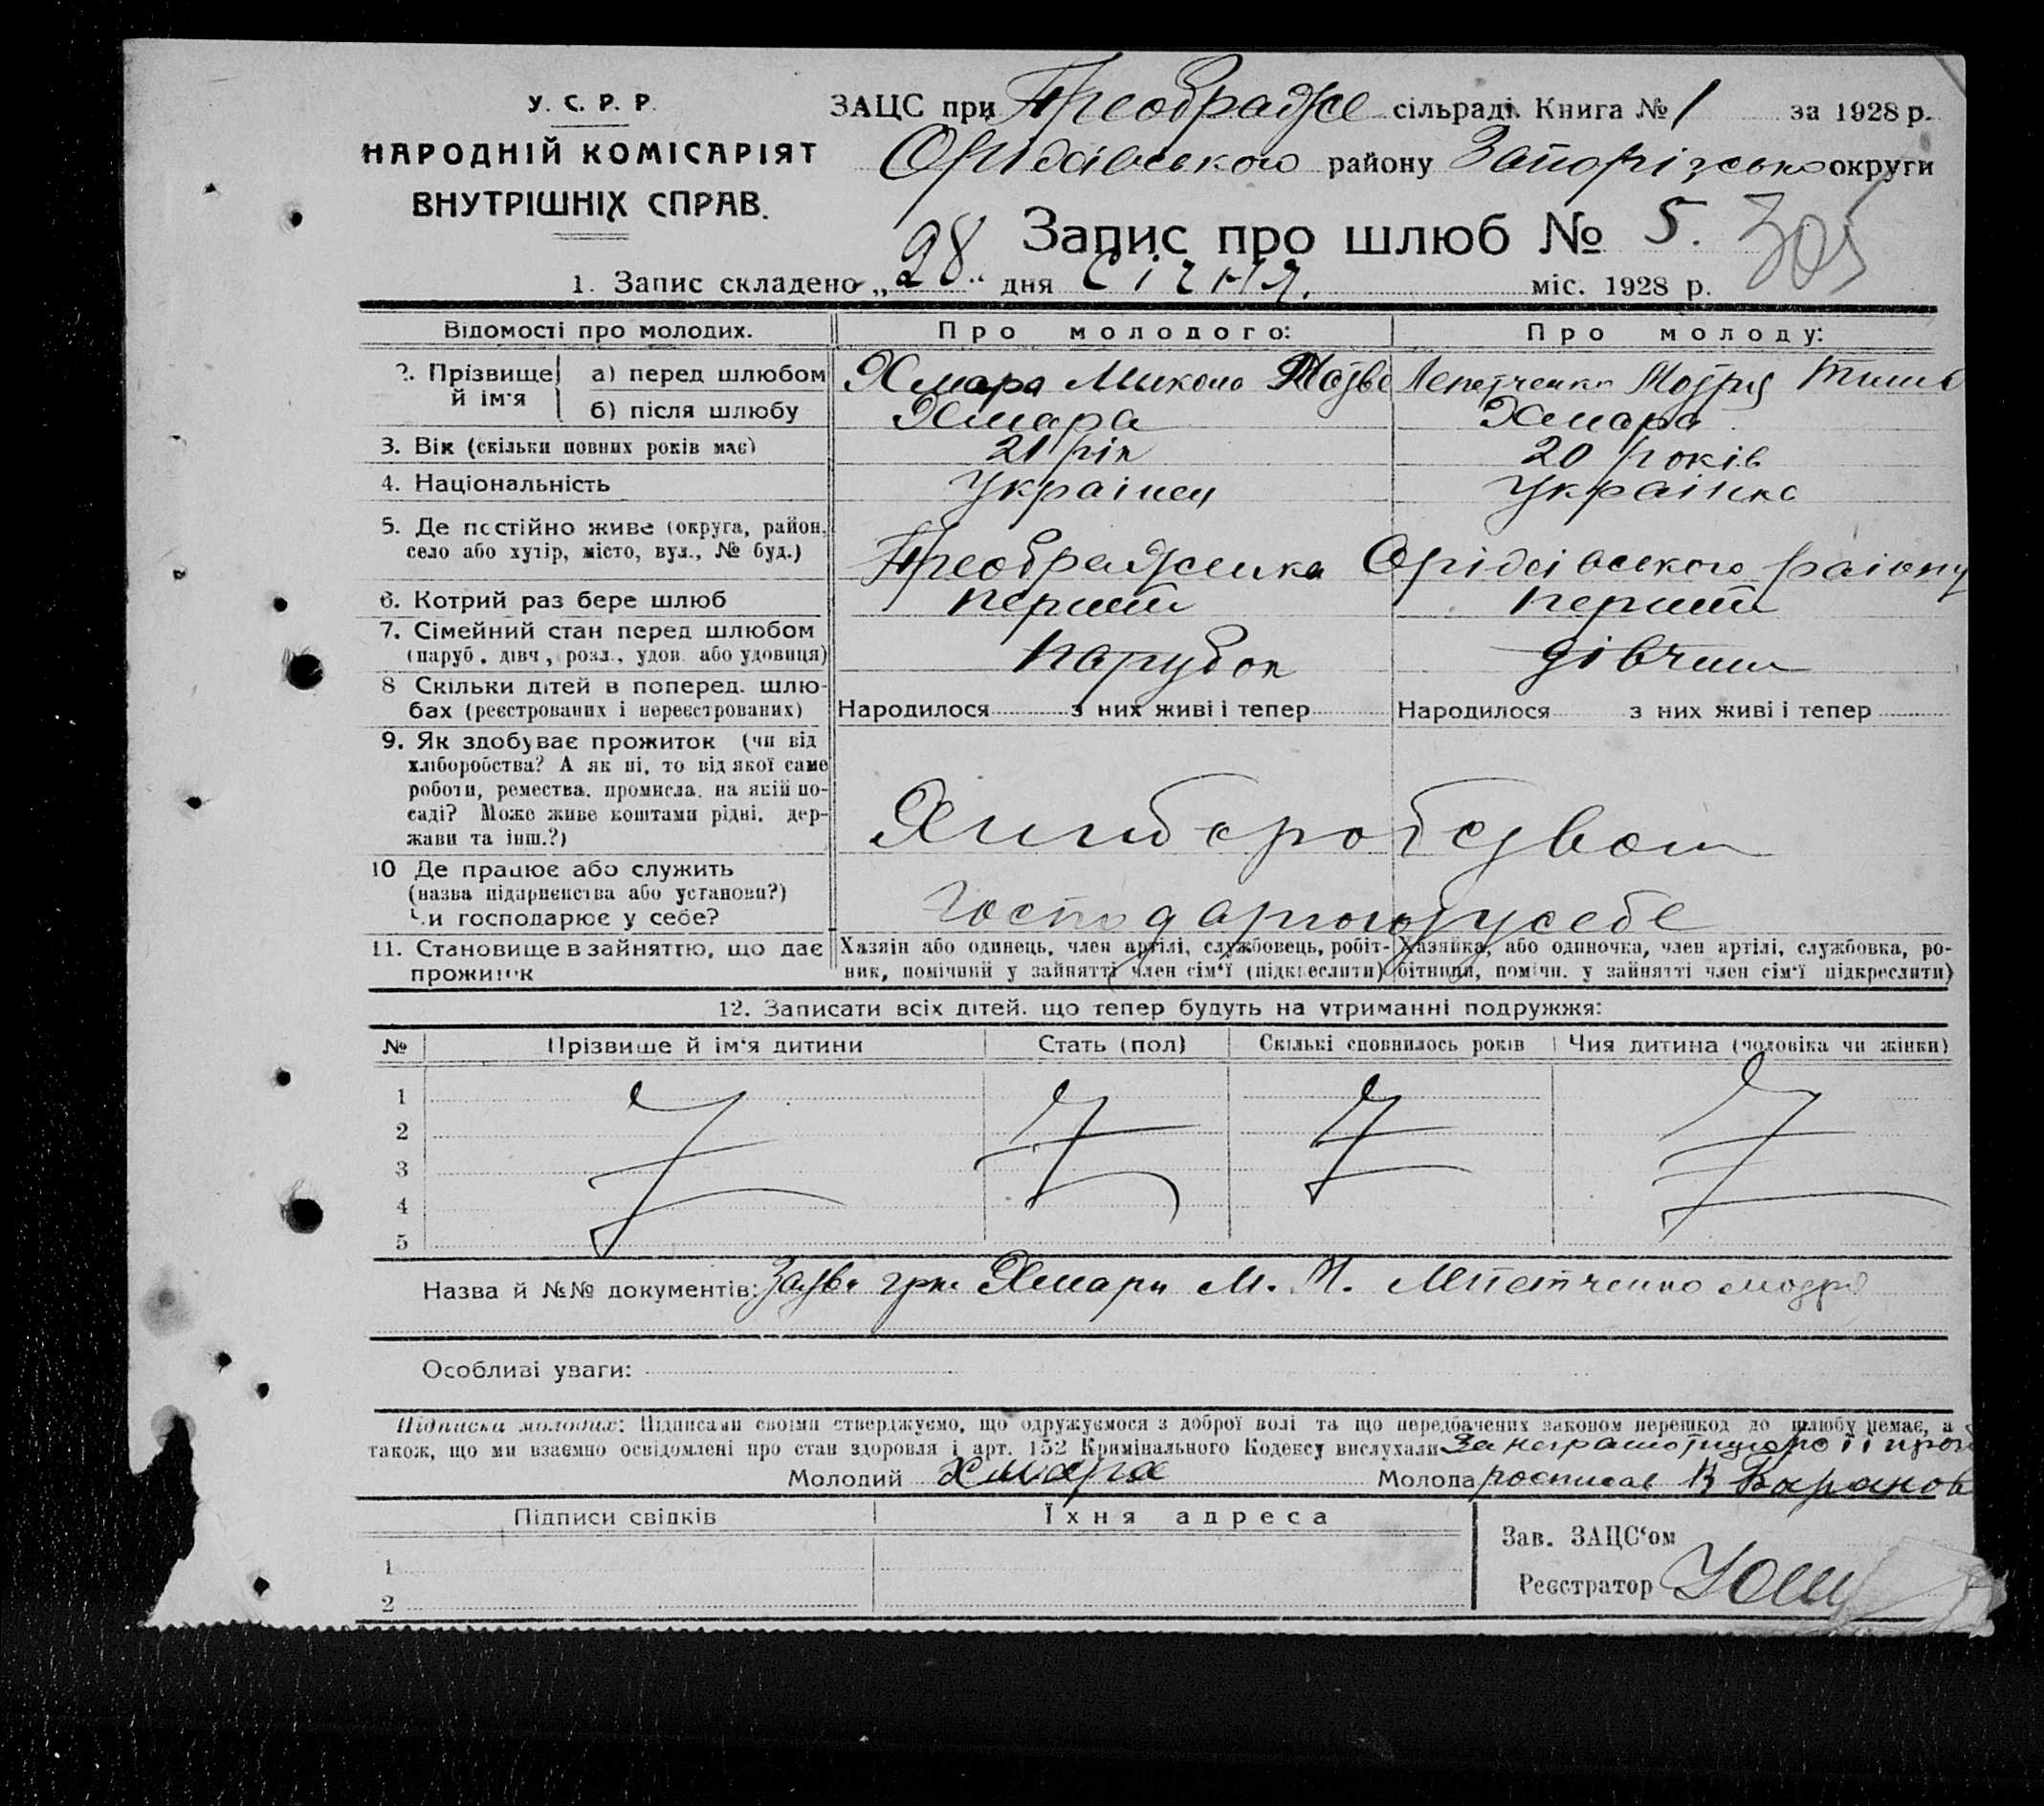 У. С. Р. Р.
НАРОДНІЙ КОМІСАРІЯТ
ВНУТРІШНІХ СПРАВ.
ЗАЦС при Преображе сільраді. Книга № 1 за 1928 р.
Оріхівського району Запорізсько округи
Запис про шлюб № 5. 305
1. Запис складено „28" дня Січня. міс. 1928 р.
Відомості про молодих. Про молодого: Про молоду:
2. Прізвище й ім'я а) перед шлюбом Хмара Микола Мойсе Мотря Тим
б) після шлюбу Хмара Хмара
3. Вік (скільки повних років має) 21 рік 20 років
4. Національність Українец Українка
5. Де постійно живе (округа, район,
село або хутір, місто, вул., № буд.) Преображенка Оріхівського району
6. Котрий раз бере шлюб перший перший
7. Сімейний стан перед шлюбом
(паруб., дівч., розл., удов. або удовиця) парубок дівчина
8 Скільки дітей в поперед. шлю-
бах (реєстрованих і нереєстрованих) Народилося з них живі і тепер Народилося з них живі і тепер
9. Як здобуває прожиток (чи від
хліборобства? А як ні, то від якої саме
роботи, ремества, промисла, на якій по-
саді? Може живе коштами рідні, дер-
жави та інш.?)
10 Де працює або служить
(назва підприємства або установи?)
Чи господарює у себе? у себе
11. Становище в зайняттю, що дає
прожиток
Хазяїн або одинець, член артілі, службовець, робіт-
ник, помічний у зайнятті член сім'ї (підкреслити)
Хазяйка, або одиночка, член артілі, службовка, ро-
бітниця, помічн. у зайнятті член сім'ї підкреслити)
12. Записати всіх дітей, що тепер будуть на утриманні подружжя:
№ Прізвище й ім'я дитини Стать (пол) Скількі сповнилось років Чия дитина (чоловіка чи жінки)
1
2
3
4
5
Назва й №№ документів: Хмари М. М.
Особливі уваги:
Підписка молодих: Підписами своїми стверджуємо, що одружуємося з доброї волі та що передбачених законом перешкод до шлюбу немає, а
також, що ми взаємно освідомлені про стан здоровля і арт. 152 Кримінального Кодексу вислухали За неграмотную
Молодий Хмара Молода росписав
Підписи свідків Їхня адреса
1
2
Зав. ЗАЦС'ом
Реєстратор